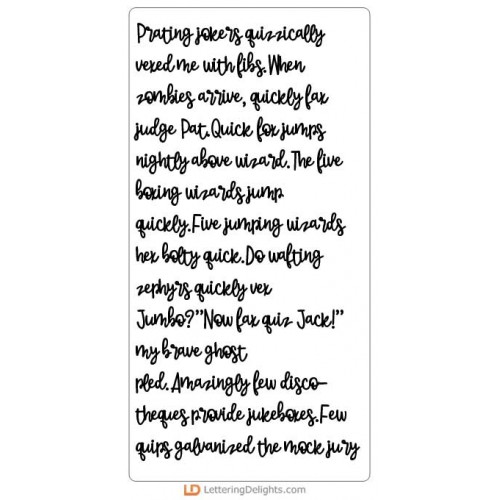 Prating jokers quizzically
vexed me with fibs.When
zombies arrive, quickly fax
judge Pat.Quick fox jumps
nightly above wizard.The five
boxing wizards jump
quickly.Five jumping wizards
hex bolty quick.Do wafting
zephyrs quickly vex
Jumbo?"Now fax quiz Jack!"
my brave ghost
pled.Amazingly few disco-
theques provide jukeboxes.Few
quips galvanized the mock jury
LD LetteringDelights.com